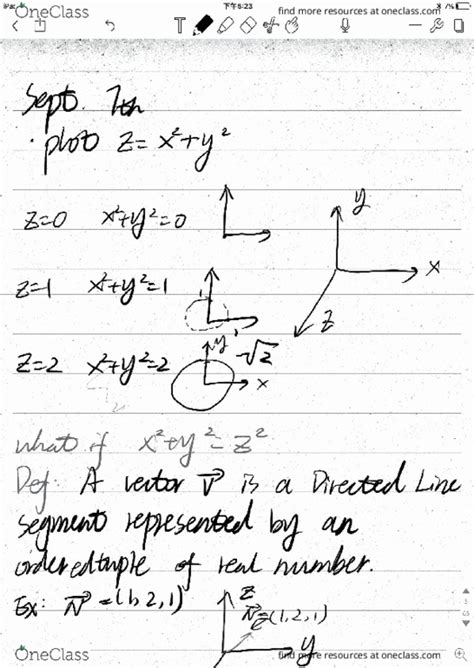 iPad
下午5:23
7%
OneClass
find more resources at oneclass.com
T
Sept. 7th
· plot z = x²+y²
z=0 x²+y²=0
y
x
z
z=1 x²+y²=1
1
z=2 x²+y²=2
y
√2
x
what if x²+y²=z²
Def: A vector v is a Directed Line
segment represented by an
ordered tuple of real number.
Ex: v = (1,2,1)
z
v=(1,2,1)
y
OneClass
find more resources at oneclass.com